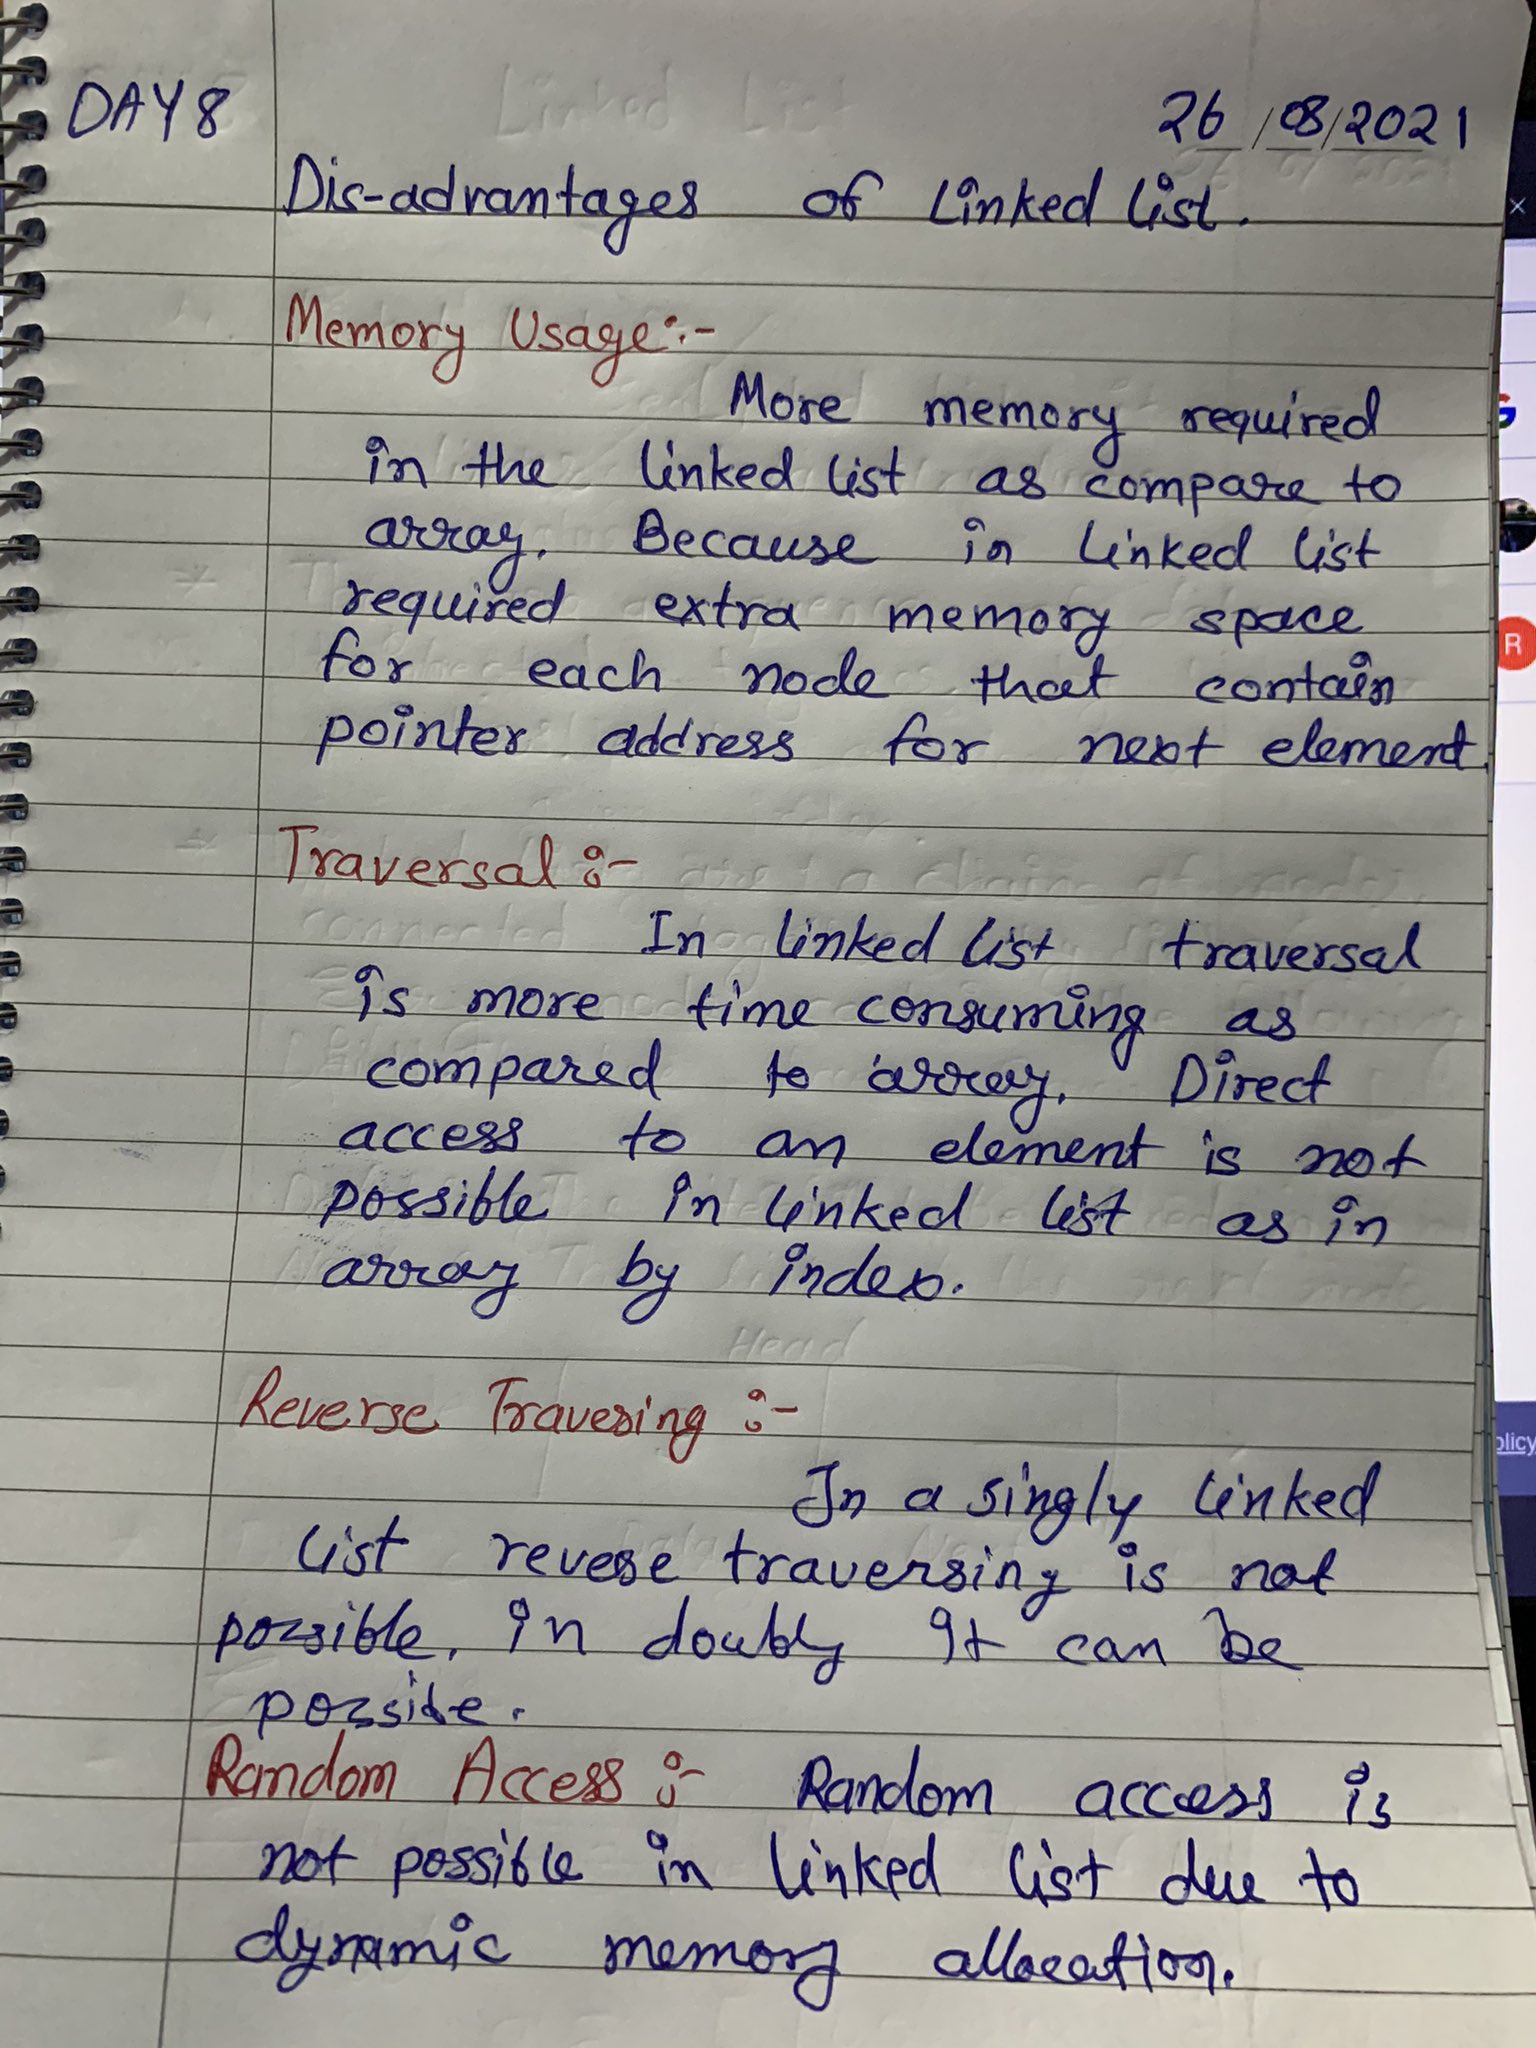 DAY 8
26/08/2021
Dis-advantages of Linked List.
Memory Usage:-
More memory required
in the linked list as compare to
array. Because in linked list
required extra memory space
for each node that contain
pointer address for next element.
Traversal :-
In linked list traversal
is more time consuming as
compared to array. Direct
access to an element is not
possible in linked list as in
array by index.
Reverse Travesing :-
In a singly linked
list revese traversing is not
possible. in doubly It can be
possible.
Random Access :- Random access is
not possible in linked list due to
dynamic memory allocation.
R
olicy
Head